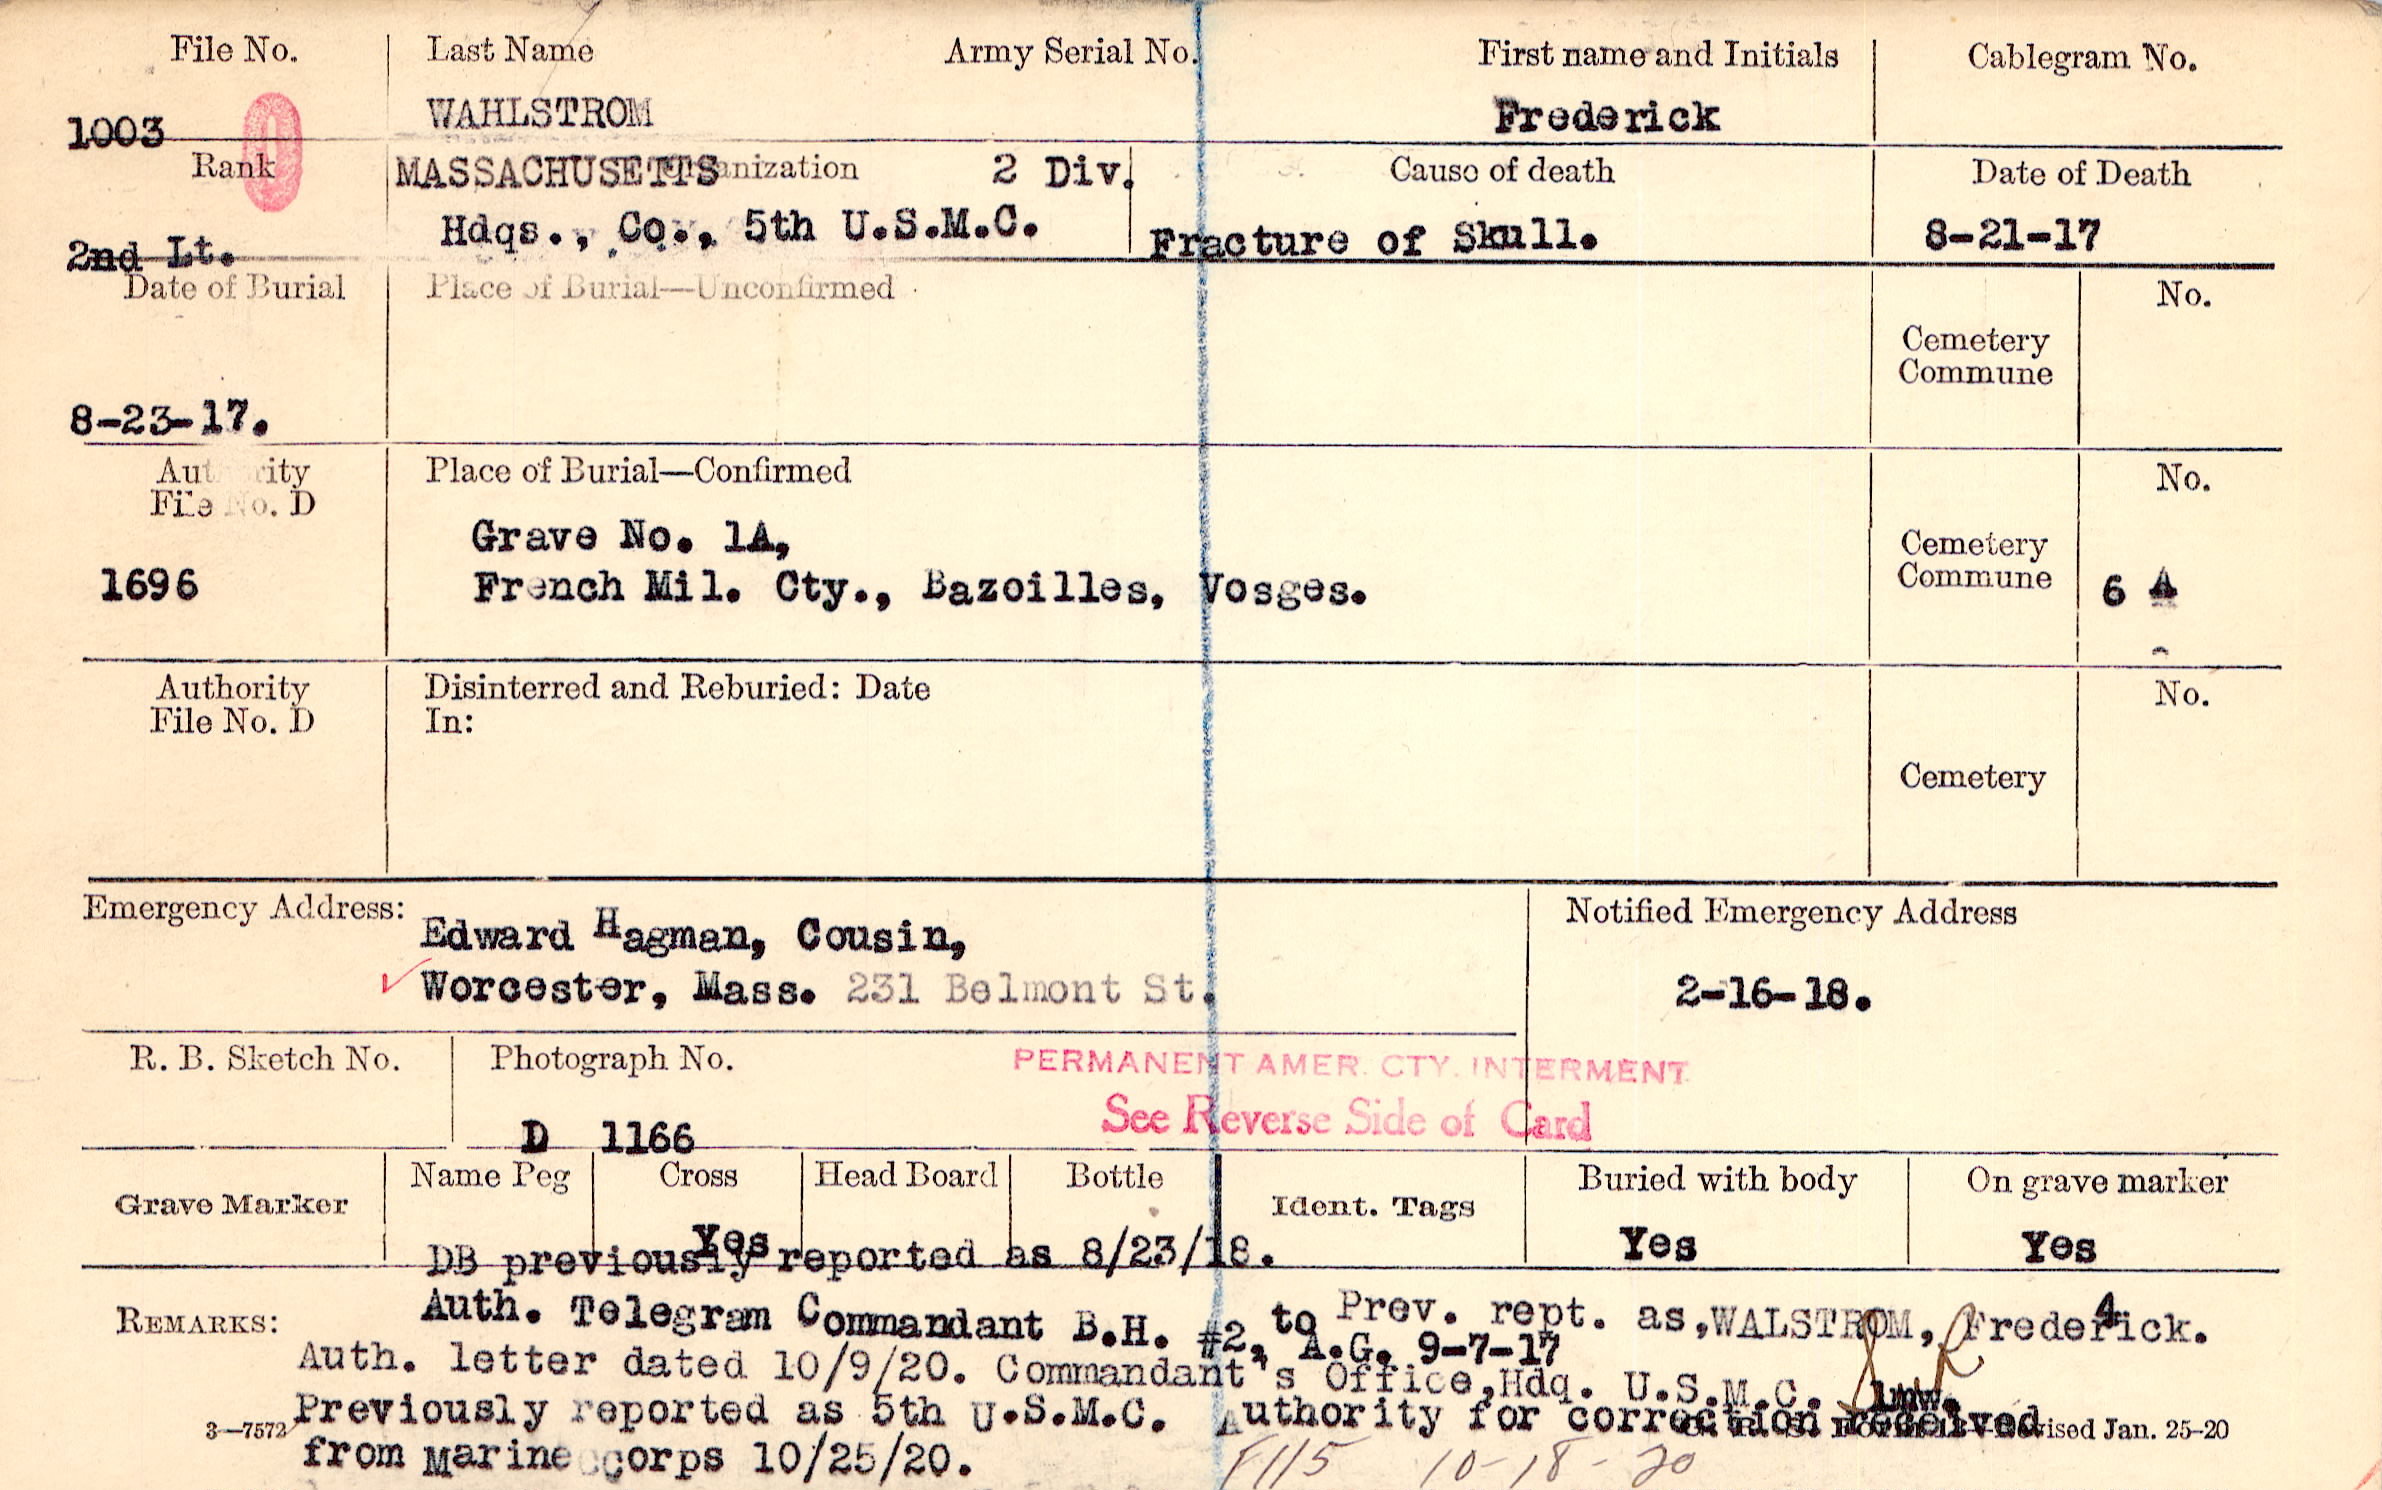 File No.
Last Name
Army Serial No.
First name and Initials
Cablegram No.
1003
0
WAHLSTROM
Frederick
Rank
MASSACHUSETTS
2 Div.
Cause of death
Date of Death
2nd Lt.
Hdqs., Co., 5th U.S.M.C.
Fracture of Skull.
8-21-17
Date of Burial
Place of Burial—Unconfirmed
No.
Cemetery
Commune
8-23-17.
Authority
File No. D
Place of Burial—Confirmed
No.
Grave No. 1A,
Cemetery
Commune
1696
French Mil. Cty., Bazoilles, Vosges.
6 A
Authority
File No. D
Disinterred and Reburied: Date
In:
No.
Cemetery
Emergency Address:
Edward Hagman, Cousin,
Worcester, Mass. 231 Belmont St.
Notified Emergency Address
2-16-18.
R. B. Sketch No.
Photograph No.
D 1166
PERMANENT AMER. CTY. INTERMENT
See Reverse Side of Card
Grave Marker
Name Peg
Cross
Yes
Head Board
Bottle
Ident. Tags
Buried with body
Yes
On grave marker
Yes
DB previously reported as 8/23/18.
REMARKS:
Auth. Telegram Commandant B.H. #2, to A.G. 9-7-17
Prev. rept. as, WALSTROM, Frederick.
Auth. letter dated 10/9/20. Commandant's Office, Hdq. U.S.M.C. lmw.
Previously reported as 5th U.S.M.C. Authority for correction received
3—7572
Jan. 25-20
from Marine corps 10/25/20.
10-18-20